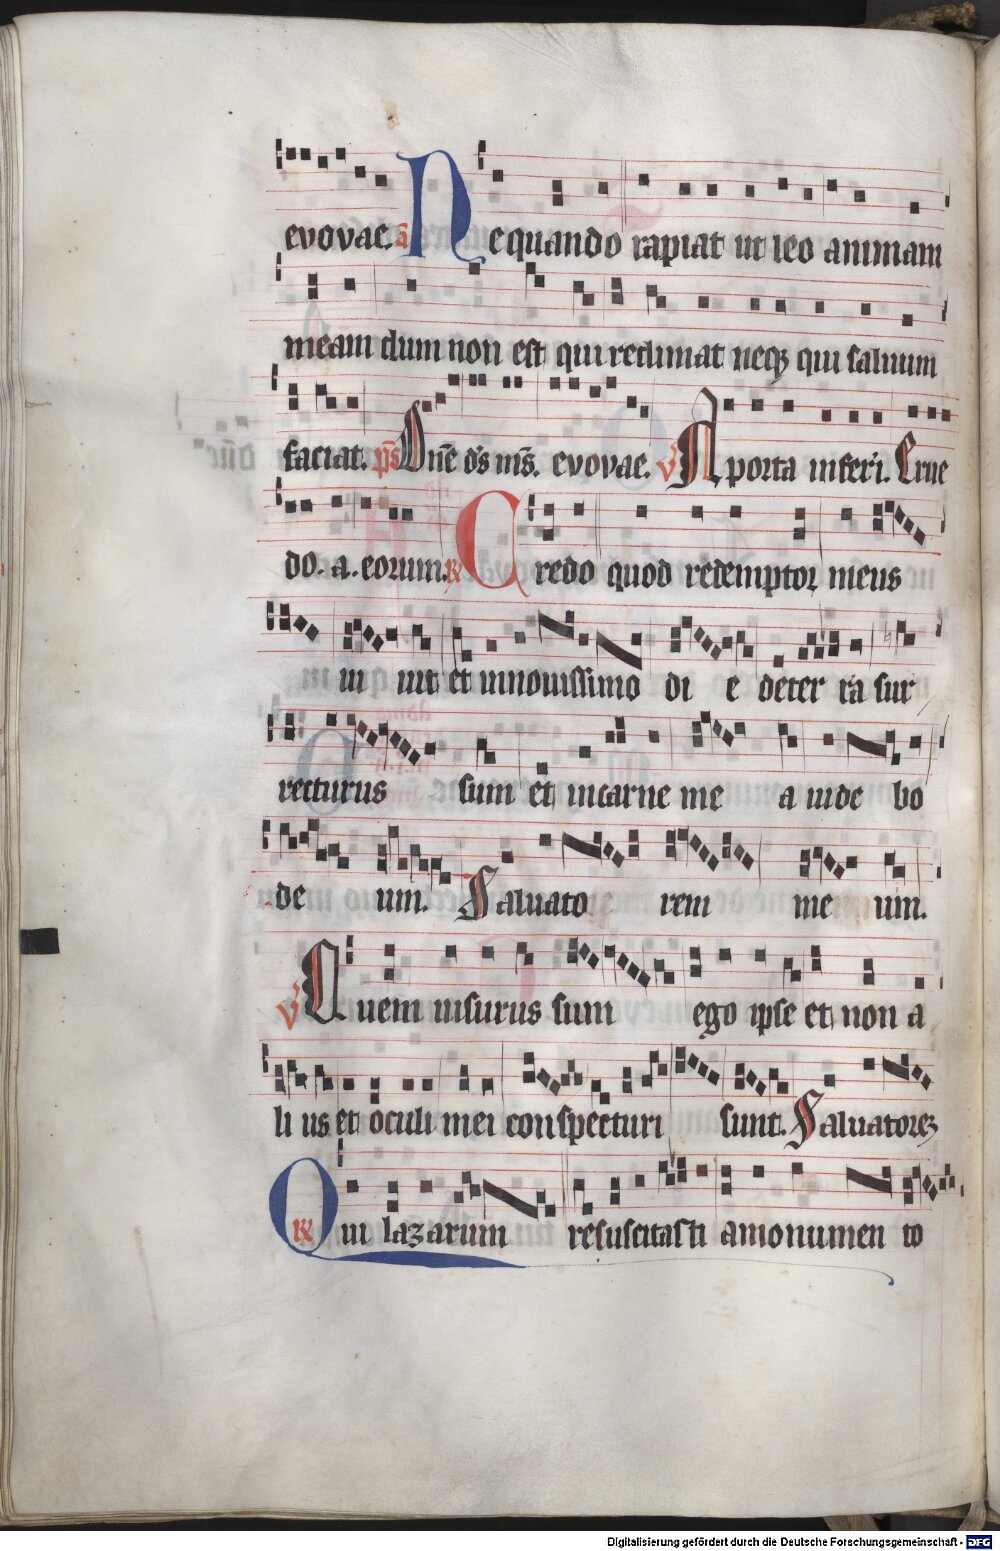 evovae. a̅ Nequando rapiat ut leo animam
meam dum non est qui redimat neqꝫ qui saluum
faciat. p̅s D̅ne d̅s m̅s. evovae. ℣ A porta inferi. Erue
do. a. eorum. ℟ Credo quod redemptor meus
ui uit et innouissimo di e deter ra sur
recturus sum et incarne me a uide bo
de um. Saluato rem me um.
℣ Quem uisurus sum ego ipse et non a
li us et oculi mei conspecturi sunt. Saluatoreꝫ
℟ Qui lazarum resuscitasti amonumen to
Digitalisierung gefördert durch die Deutsche Forschungsgemeinschaft - DFG